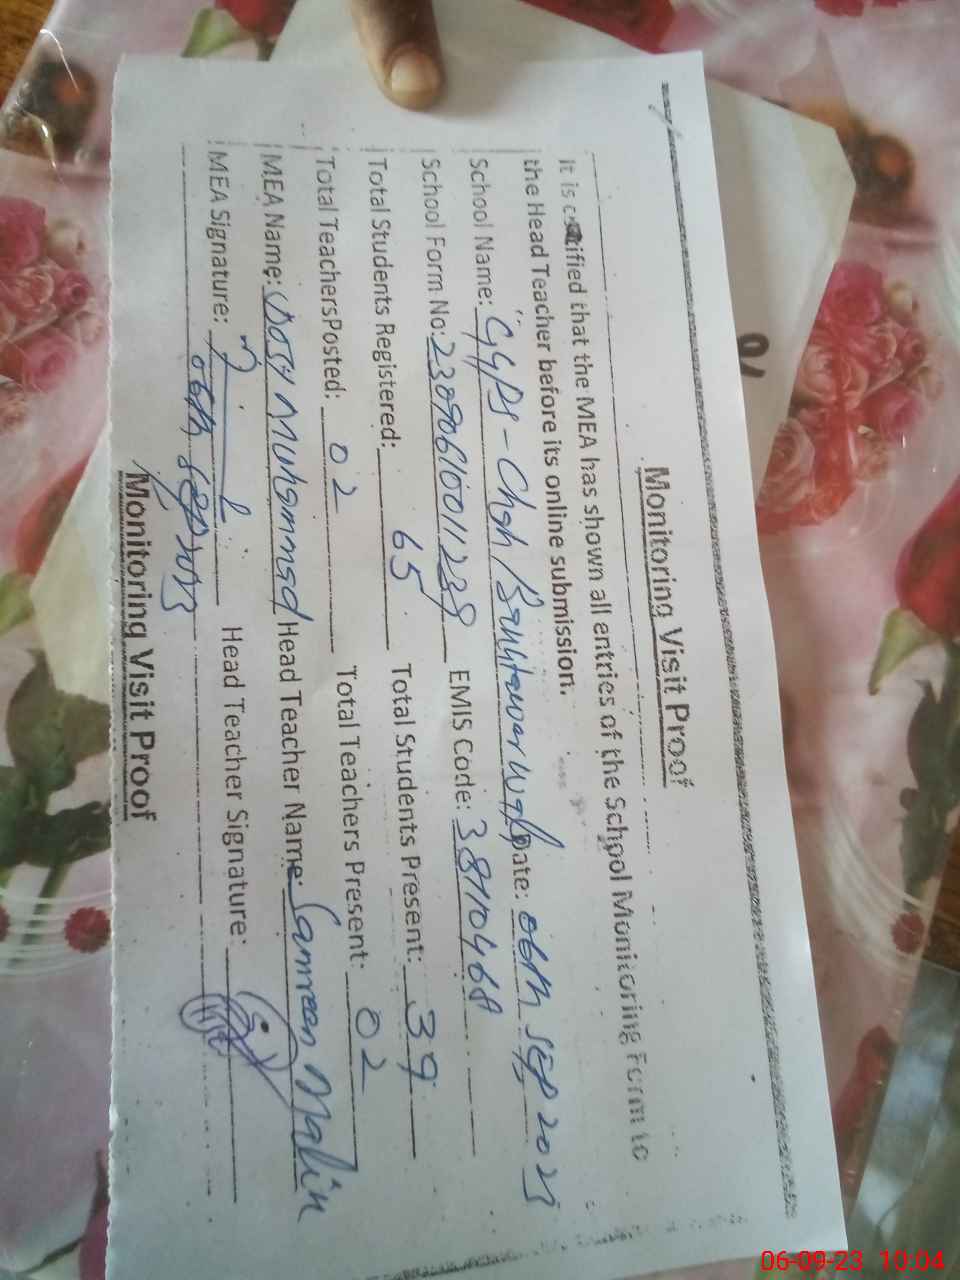 Monitoring Visit Proof
It is certified that the MEA has shown all entries of the School Monitoring Form to
the Head Teacher before its online submission.
School Name: GGPS - Chah Date: 06th Sep 2023
School Form No: EMIS Code: 38710468
Total Students Registered: 65 Total Students Present: 39
Total TeachersPosted: 02 Total Teachers Present: 02
MEA Name: Dost Muhammad Head Teacher Name: Samreen
MEA Signature: Head Teacher Signature:
06th Sep 2023
Monitoring Visit Proof
06-09-23 10:04